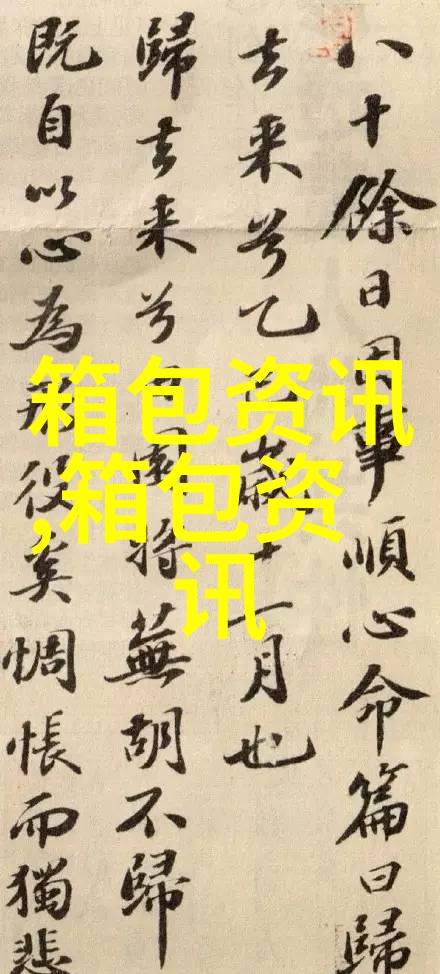 八十餘日因事順心命篇曰歸
去来兮乙歲十一月也
歸去来兮園将蕪胡不歸
既自以心為形役奚惆悵而獨悲
箱包资讯
,箱包资
讯